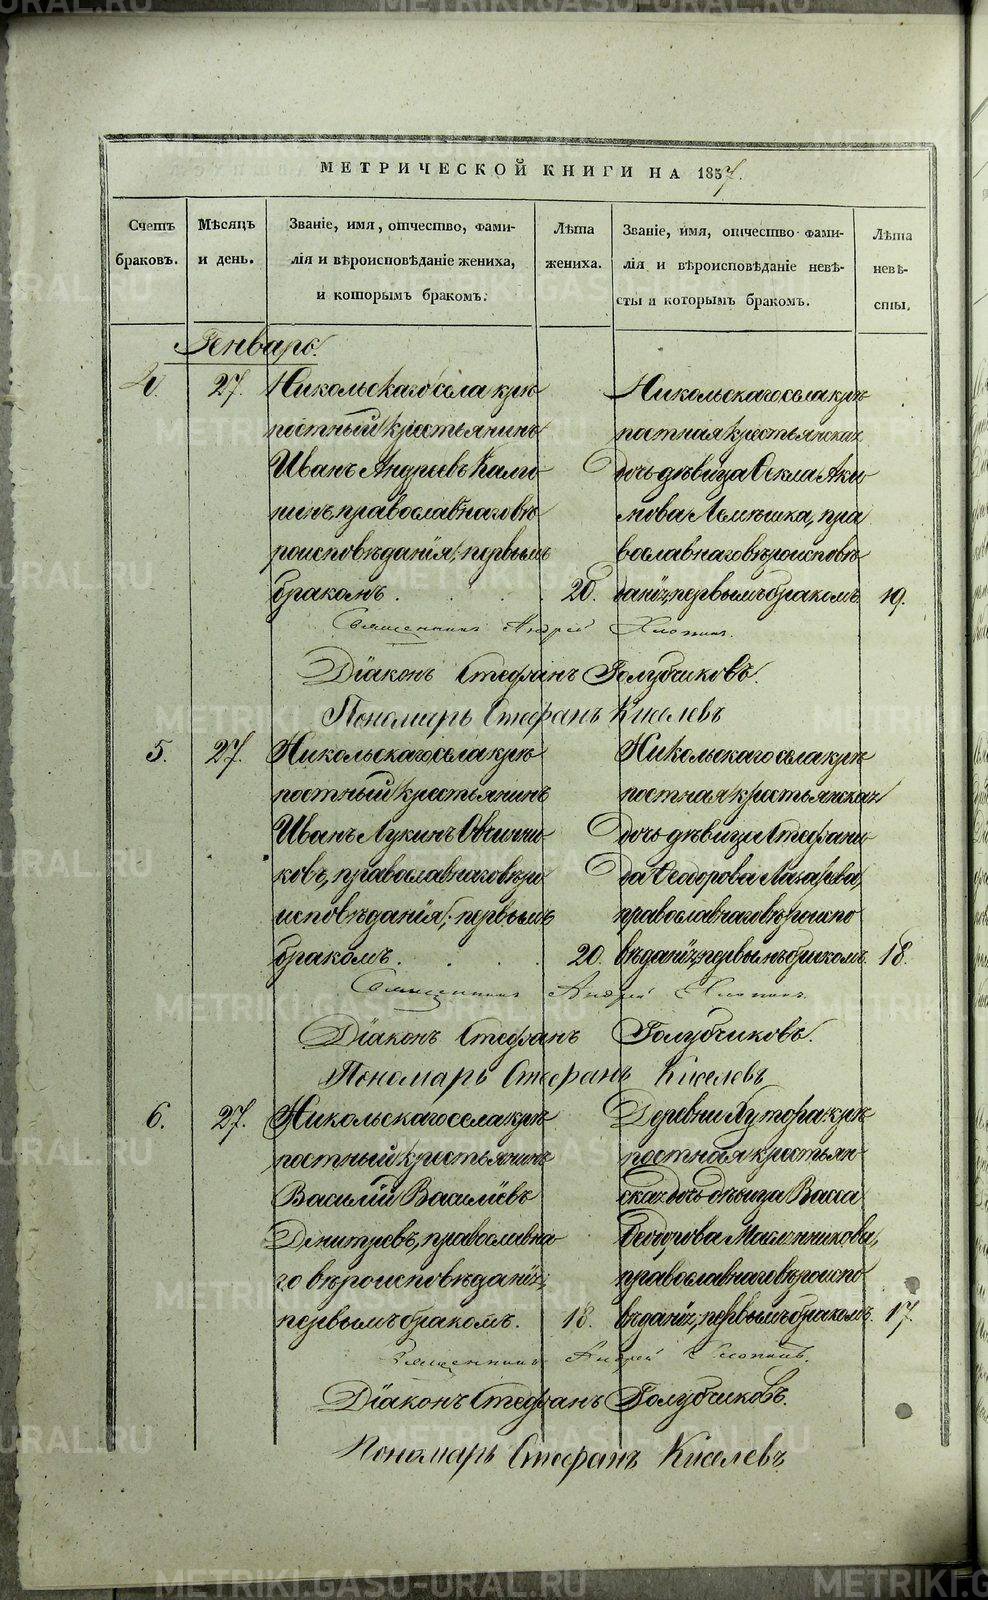 МЕТРИЧЕСКОЙ КНИГИ НА 1857.
Счетъ браковъ.
Мѣсяцъ и день.
Званіе, имя, отчество, фами-
лія и вѣроисповѣданіе жениха,
и которымъ бракомъ.
Лѣта жениха.
Званіе, имя, отчество фами-
лія и вѣроисповѣданіе невѣ-
сты и которымъ бракомъ.
Лѣта невѣ-
сты.
Генварь.
4. 27.
Никольскаго села крѣ
постный крестьянинъ
Иванъ Андреевъ
православнаго вѣ
роисповѣданія, первымъ
бракомъ. 20.
Никольскаго села крѣ
постная крестьянская
дочь дѣвица Ѳекла Аки
мова пра
вославнаго вѣроисповѣ
данія, первымъ бракомъ. 19.
Священникъ Андрей
Діаконъ Стефанъ Голубчиковъ.
Пономарь Стефанъ Киселевъ
5. 27.
Никольскаго села крѣ
постный крестьянинъ
Иванъ Лукинъ Овчинни
ковъ, православнаго вѣро
исповѣданія, первымъ
бракомъ. 20.
Никольскаго села крѣ
постная крестьянская
дочь дѣвица Стефани
да Ѳеодорова Лазарева,
православнаго вѣроиспо
вѣданія, первымъ бракомъ. 18.
Священникъ Андрей
Діаконъ Стефанъ Голубчиковъ.
Пономарь Стефанъ Киселевъ
6. 27.
Никольскаго села крѣ
постный крестьянинъ
Василій Василіевъ
Дмитріевъ, православна
го вѣроисповѣданія,
первымъ бракомъ. 18.
Деревни Хутора крѣ
постная крестьян
ская дочь дѣвица Васса
Ѳеодорова Масленникова,
православнаго вѣроиспо
вѣданія, первымъ бракомъ. 17.
Священникъ Андрей
Діаконъ Стефанъ Голубчиковъ.
Пономарь Стефанъ Киселевъ
METRIKI.GASO-URAL.RU